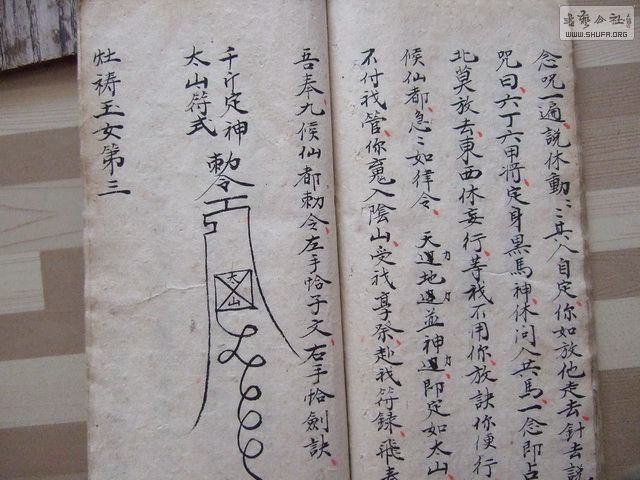 念咒一遍説休動〻其人自定你如放他走去針去説
咒曰六丁六甲將定身黑馬神休問人共馬一念即占
北莫放去東西休妄行等我不用你放訣你便行
候仙都急〻如律令 天遑地遑並神遑即定如太山
力力力
不付我管你嵬入陰山受我享祭赴我符録飛奉
吾奉九候仙都勅令左手恰子文右手恰劍訣
千斤定神
太山符式
勅令
太山
灶祷玉女第三
書藝公社
WWW.SHUFA.ORG